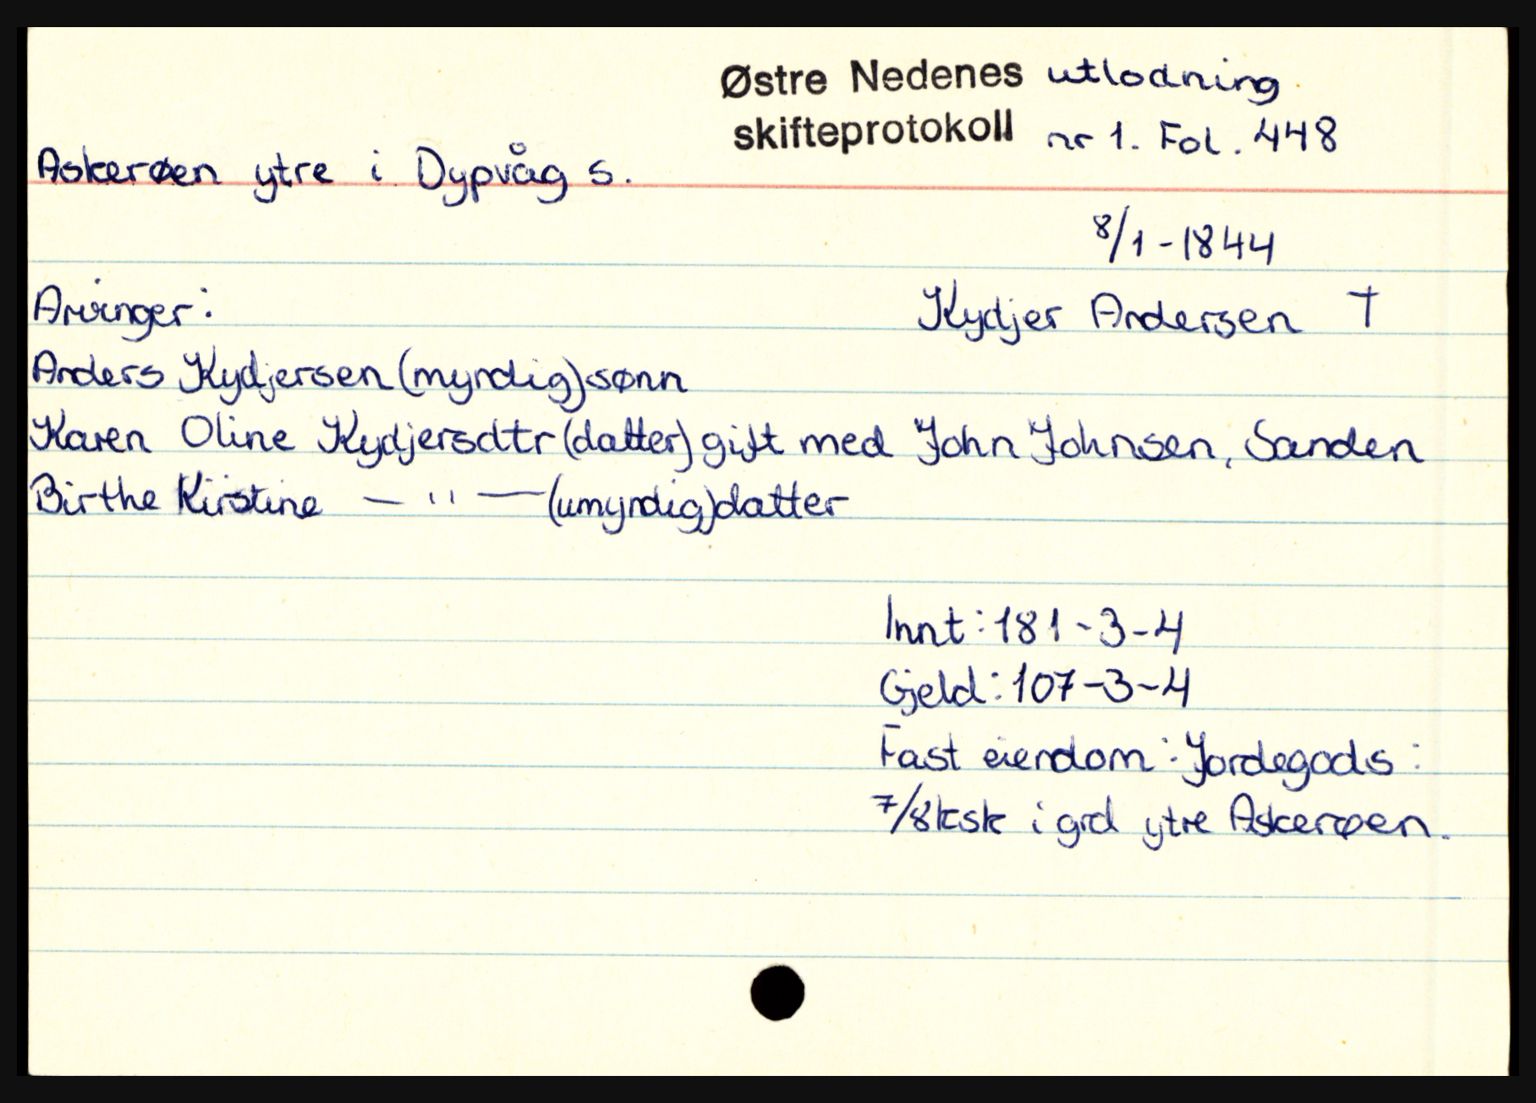 Østre Nedenes utlodning
skifteprotokoll nr 1. Fol. 448
Askerøen ytre i Dypvåg s.
8/1-1844
Arvinger:
Kydjer Andersen †
Anders Kydjersen (myndig) sønn
Karen Oline Kydjersdtr (datter) gift med John Johnsen, Sanden
Birthe Kirstine — " — (umyndig) datter
Innt: 181-3-4
Gjeld: 107-3-4
Fast eiendom: Jordegods:
7/8 ksk i grd ytre Askerøen.